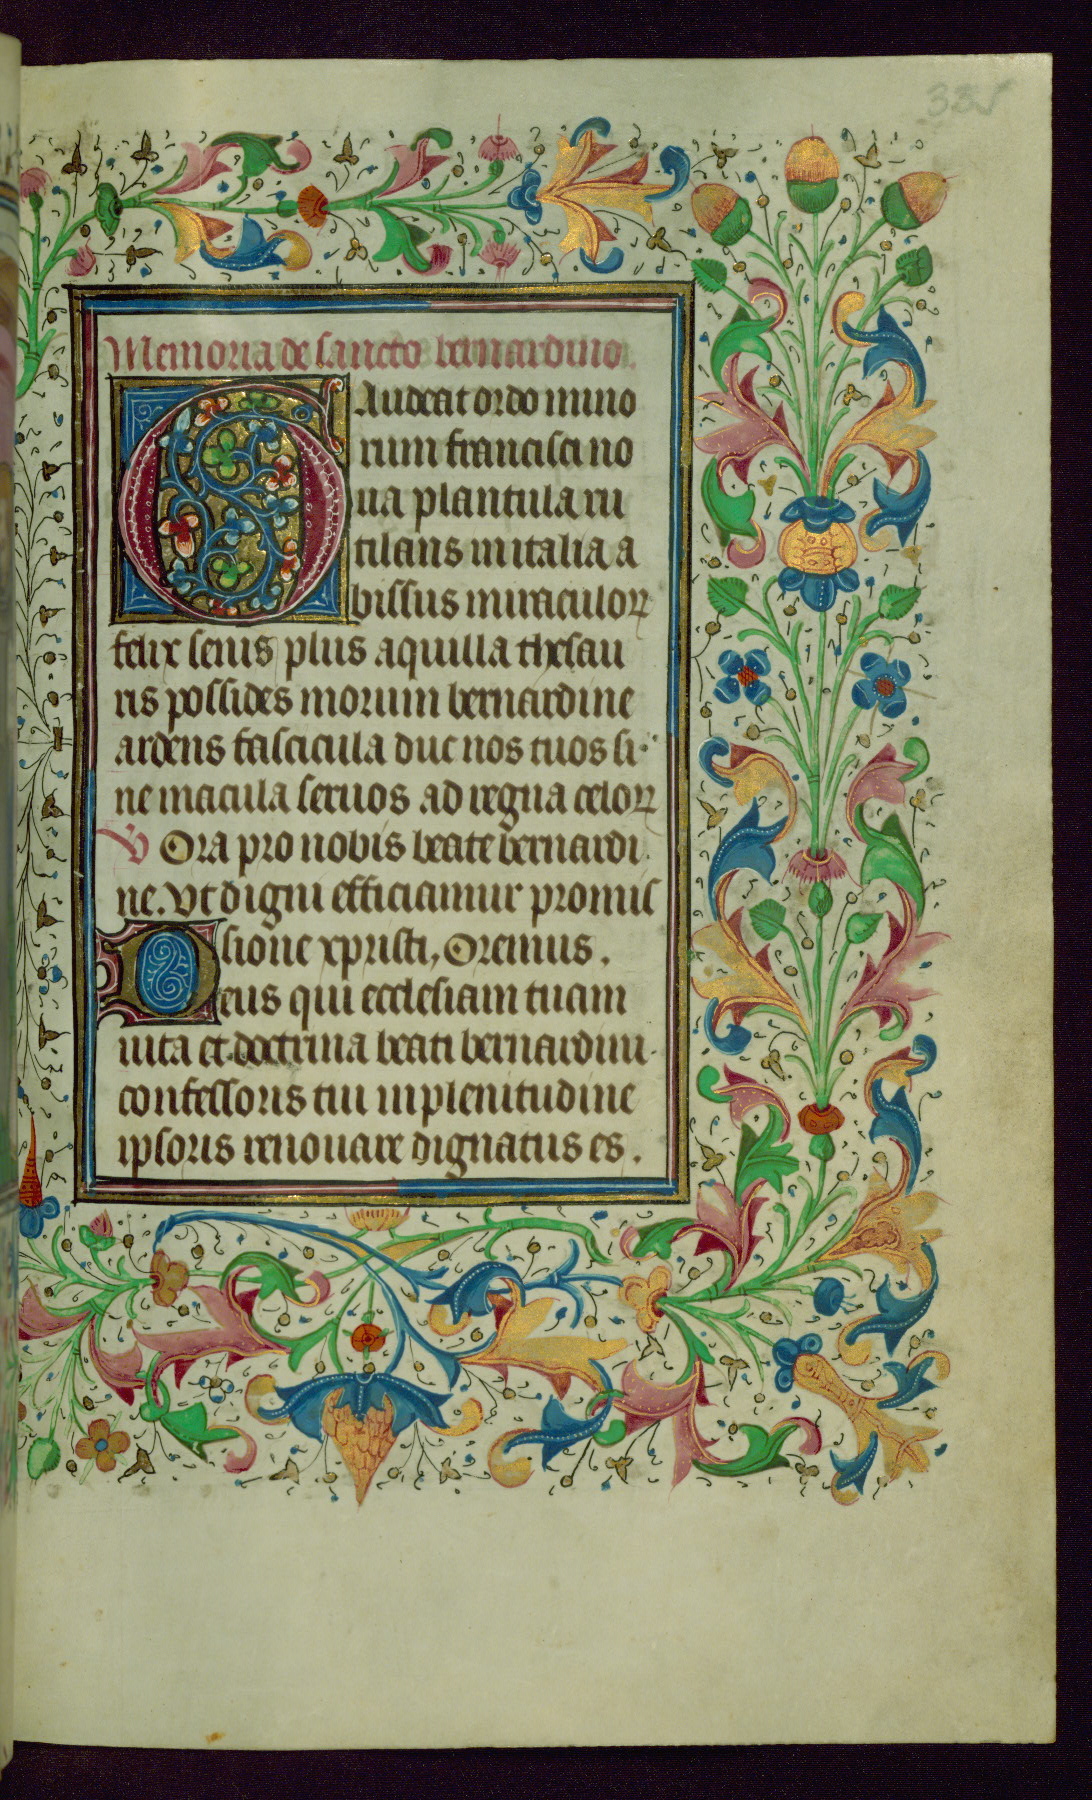 335
Memoria de sancto bernardino.
Gaudeat ordo mino
rum francisci no
ua plantula ru
tilans in italia a
bissus miraculoꝝ
felix senis plus aquilla thesau
ris possides morum bernardine
ardens fascicula duc nos tuos si
ne macula seruos ad regna celoꝝ
V Ora pro nobis beate bernardi
ne. Vt digni efficiamur promis
sione xpristi, Oremus.
Deus qui ecclesiam tuam
uita et doctrina beati bernardini
confessoris tui in plenitudine
ipsoris renouare dignatus es.